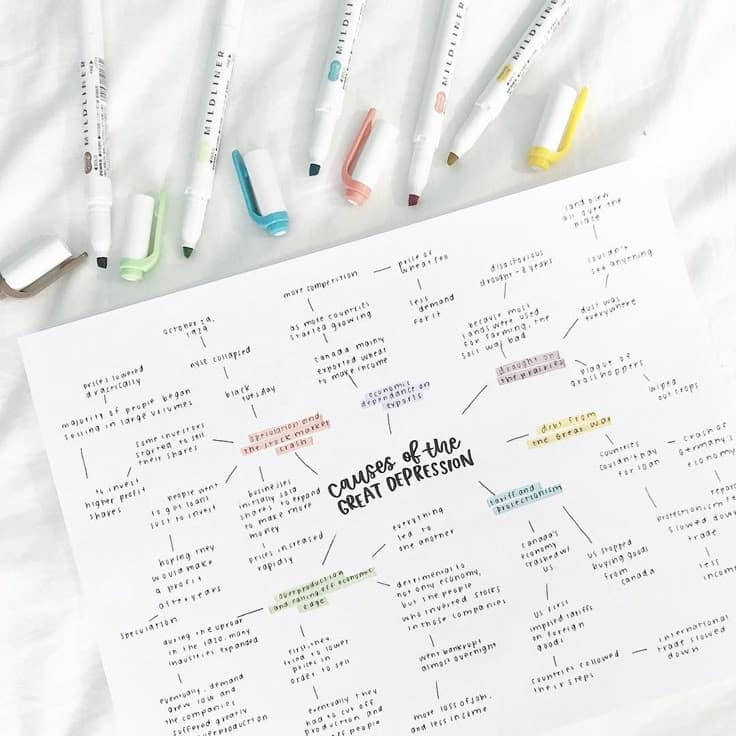 MILDLINER
MILDLINER
MILDLINER
MILDLINER
MILDLINER
causes of the
GREAT DEPRESSION
economic
dependance on
exports
canada mainly
exported wheat
to make income
as more countries
started growing
more competition
price of
wheat fell
less
demand
for it
drought on
the prairies
because most
lands were used
for farming, the
soil was bad
disastorous
drought - 8 years
dust was
everywhere
couldn't
see anything
sand pien
all over the
place
plague of
grasshoppers
wiped
out crops
debts from
the Great war
countries
couldn't pay
for loan
crash of
Germany's
economy
protectionism
slowed down
trade
less
income
tariff and
protectionism
canada's
economy
crashed w/
US
US stopped
buying goods
from
canada
US first
imposed tariffs
on foreign
goods
countries followed
their steps
international
trade slowed
down
everything
led to
one another
detrimental to
not only economy,
but the people
who invested stocks
in those companies
went bankrupt
almost overnight
more loss of job,
and less income
overproduction
and falling off economic
edge
first, they
tried to lower
prices in
order to sell
eventually they
had to cut off
production and
off people
during the uproar
in the 1920, many
industries expanded
eventually, demand
grew low and
the companies
suffered greatly
overproduction
speculation and
the stock market
crash
black
tuesday
nyse collapsed
october 29,
1929
some investors
started to sell
their shares
majority of people began
selling in large volumes
prices lowered
drastically
to invest
higher profit
shares
people went
to get loans
just to invest
hoping they
would make
a profit
after years
speculation
businesses
initially sold
shares to expand
to make more
money
prices increased
rapidly